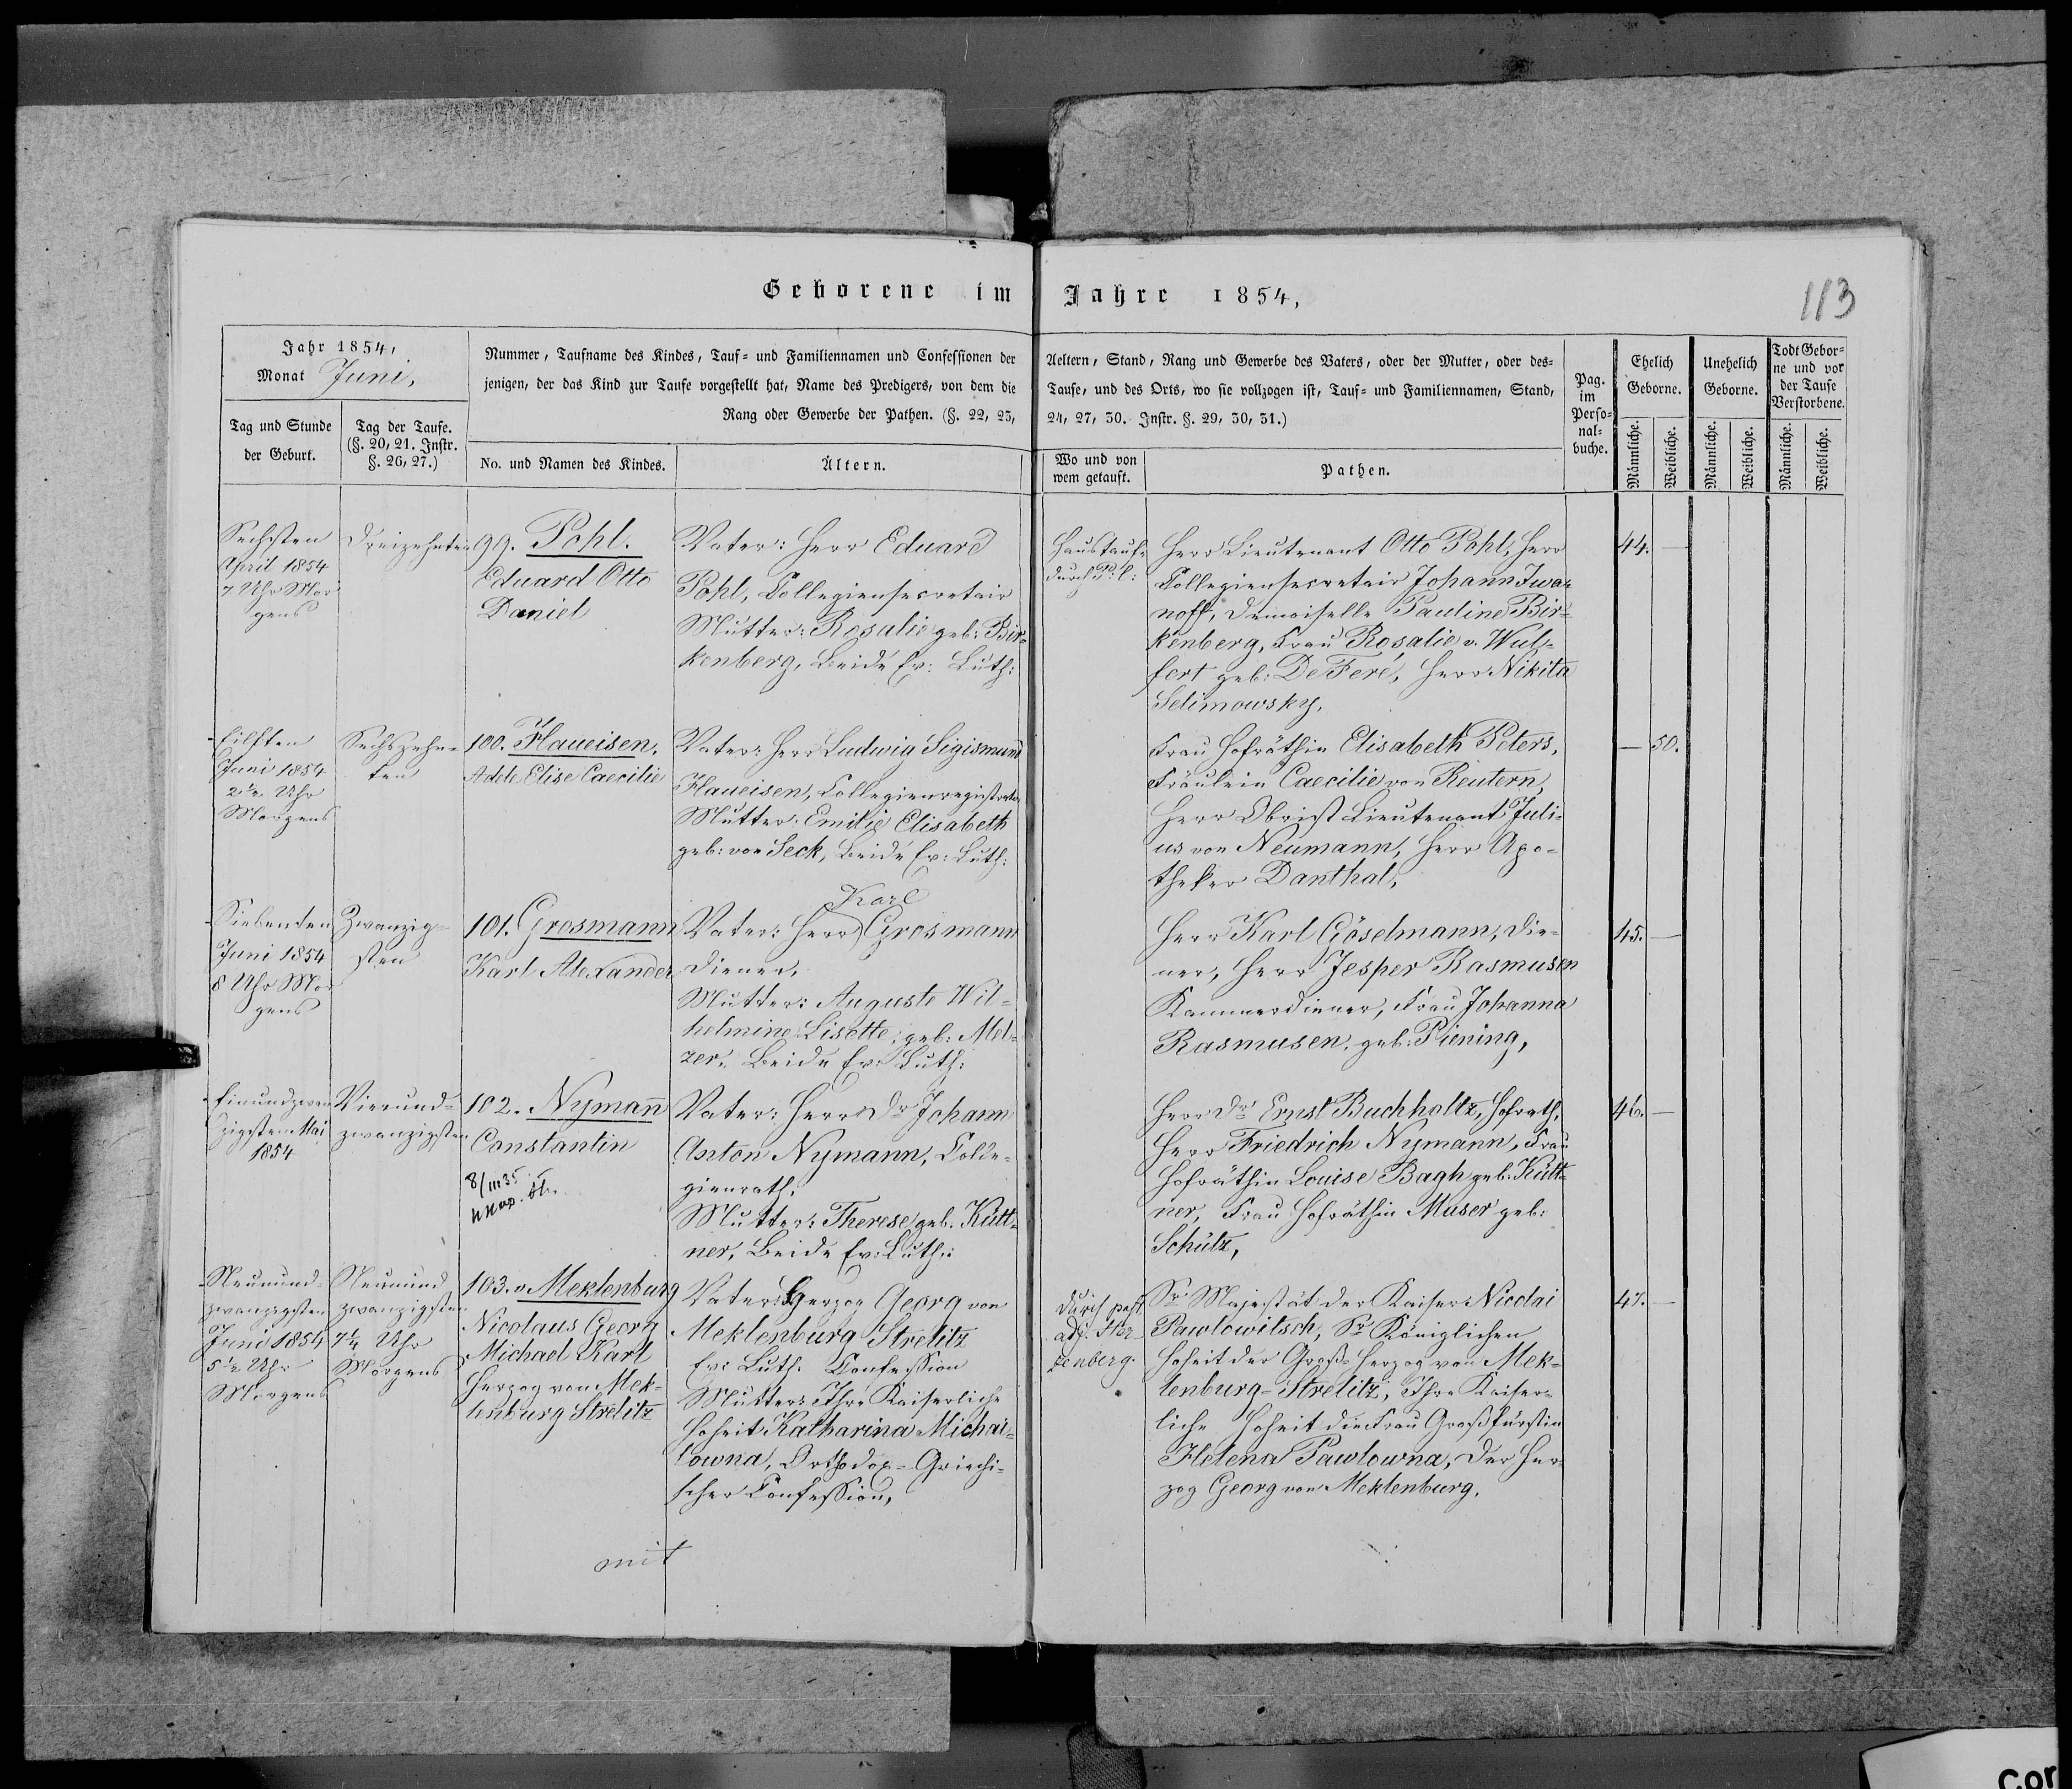 Geborene im Jahre 1854,
113
Jahr 1854,
Monat Juni,
Tag und Stunde
der Geburt.
Tag der Taufe.
(§. 20, 21. Instr.
§. 26, 27.)
Nummer, Taufname des Kindes, Tauf- und Familiennamen und Confessionen der
jenigen, der das Kind zur Taufe vorgestellt hat, Name des Predigers, von dem die
Rang oder Gewerbe der Pathen. (§. 22, 23,
No. und Namen des Kindes.
Ältern.
Aeltern, Stand, Rang und Gewerbe des Vaters, oder der Mutter, oder des-
Taufe, und des Orts, wo sie vollzogen ist, Tauf- und Familiennamen, Stand,
24, 27, 30. Instr. §. 29, 30, 31.)
Wo und von
wem getauft.
Pathen.
Pag.
im
Perso-
nal-
buche.
Ehelich
Geborne.
Unehelich
Geborne.
Todt Gebor-
ne und vor
der Taufe
Verstorbene.
Männliche.
Weibliche.
Männliche.
Weibliche.
Männliche.
Weibliche.
Sechsten
April 1854
7 Uhr Mor
gens
Dreizehnten
99. Pohl.
Eduard Otto
Daniel
Vater: Herr Eduard
Pohl, Collegiensecretair
Mutter: Rosalie geb: Bir-
kenberg, Beide Ev: Luth:
Haustaufe
durch P: l:
Herr Lieutenant Otto Pohl, Herr
Collegiensecretair Johann Iwa-
noff, Demoiselle Pauline Bir-
kenberg, Frau Rosalie v. Wul-
fert geb: De Feré, Herr Nikita
Selimowsky,
44. —
Eilften
Juni 1854
2½ Uhr
Morgens
Sechszehn-
ten
100. Haueisen,
Adele Elise Caecilie
Vater: Herr Ludwig Sigismund
Haueisen, Collegienregistrator
Mutter: Emilie Elisabeth
geb: von Seck, Beide Ev: Luth:
Frau Hofräthin Elisabeth Peters,
Fräulein Caecilie von Reutern,
Herr Obrist Lieutenant Juli-
us von Neumann, Herr Apo-
theker Danthal,
— 50.
Siebenten
Juni 1854
8 Uhr Mor
gens
Zwanzig-
sten
101. Grosmann
Karl Alexander
Karl
Vater: Herr Grosmann
Diener,
Mutter: Auguste Wil-
helmine Lisette, geb: Mel-
zer, Beide Ev: Luth:
Herr Karl Göselmann, Die-
ner, Herr Jesper Rasmusen
Kammerdiener, Frau Johanna
Rasmusen, geb: Piening,
45. —
Einundzwan
zigsten Mai
1854
Vierund-
zwanzigsten
102. Nyman̄
Constantin
8/III 35
Vater: Herr Dr Johann
Anton Nymann, Colle-
gienrath,
Mutter: Therese geb. Kütt-
ner, Beide Ev: Luth:
Herr Dr Ernst Buchholtz, Hofrath,
Herr Friedrich Nymann, Frau
Hofräthin Louise Bagh geb. Kütt-
ner, Frau Hofräthin Muser geb:
Schütz,
46. —
Neunund-
zwanzigsten
Juni 1854
5½ Uhr
Morgens
Neunund
zwanzigsten
7¼ Uhr
Morgens
103. v. Meklenburg
Nicolaus Georg
Michael Karl
Herzog von Mek-
lenburg Strelitz
Vater: Herzog Georg von
Meklenburg Strelitz
Ev: Luth. Confession
Mutter: Ihre Kaiserliche
Hoheit Katharina Michai-
lowna, Orthodox-Griechi-
scher Confession,
durch past.
adj.
Sr Majestät der Kaiser Nicolai
Pawlowitsch, Sr Königlichen
Hoheit der Groß-Herzog von Mek-
lenburg-Strelitz, Ihre Kaiser-
liche Hoheit die Frau Großfürstin
Helena Pawlowna, der Her-
zog Georg von Meklenburg,
47. —
mit
Cor